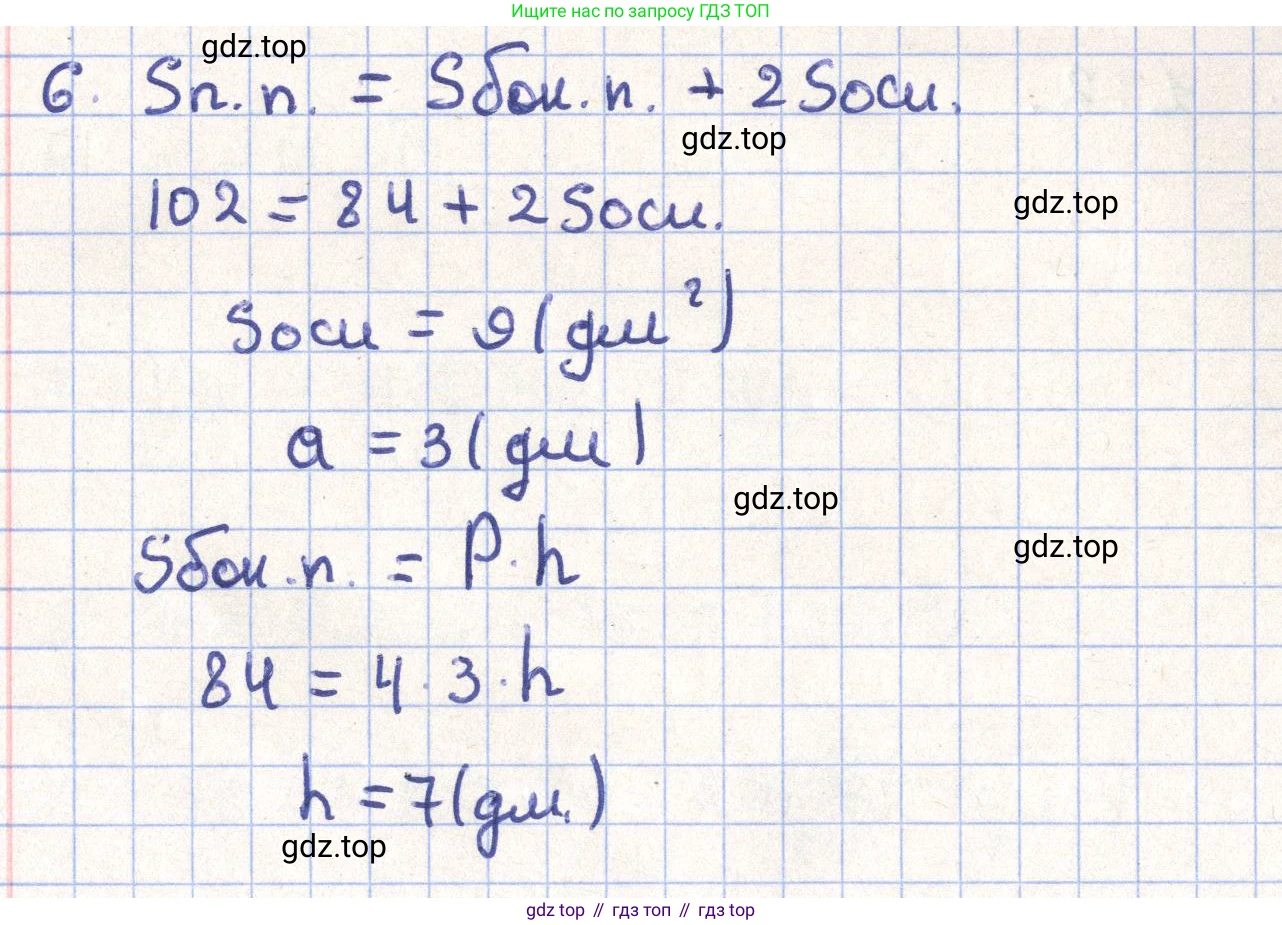 Ищите нас по запросу ГДЗ ТОП
gdz.top
6. Sп.п. = Sбок.п. + 2Sосн.
gdz.top
102 = 84 + 2Sосн.
gdz.top
Sосн = 9(дм²)
a = 3(дм)
gdz.top
Sбок.п. = P·h
gdz.top
84 = 4·3·h
h = 7(дм.)
gdz.top
gdz top // гдз топ // гдз top